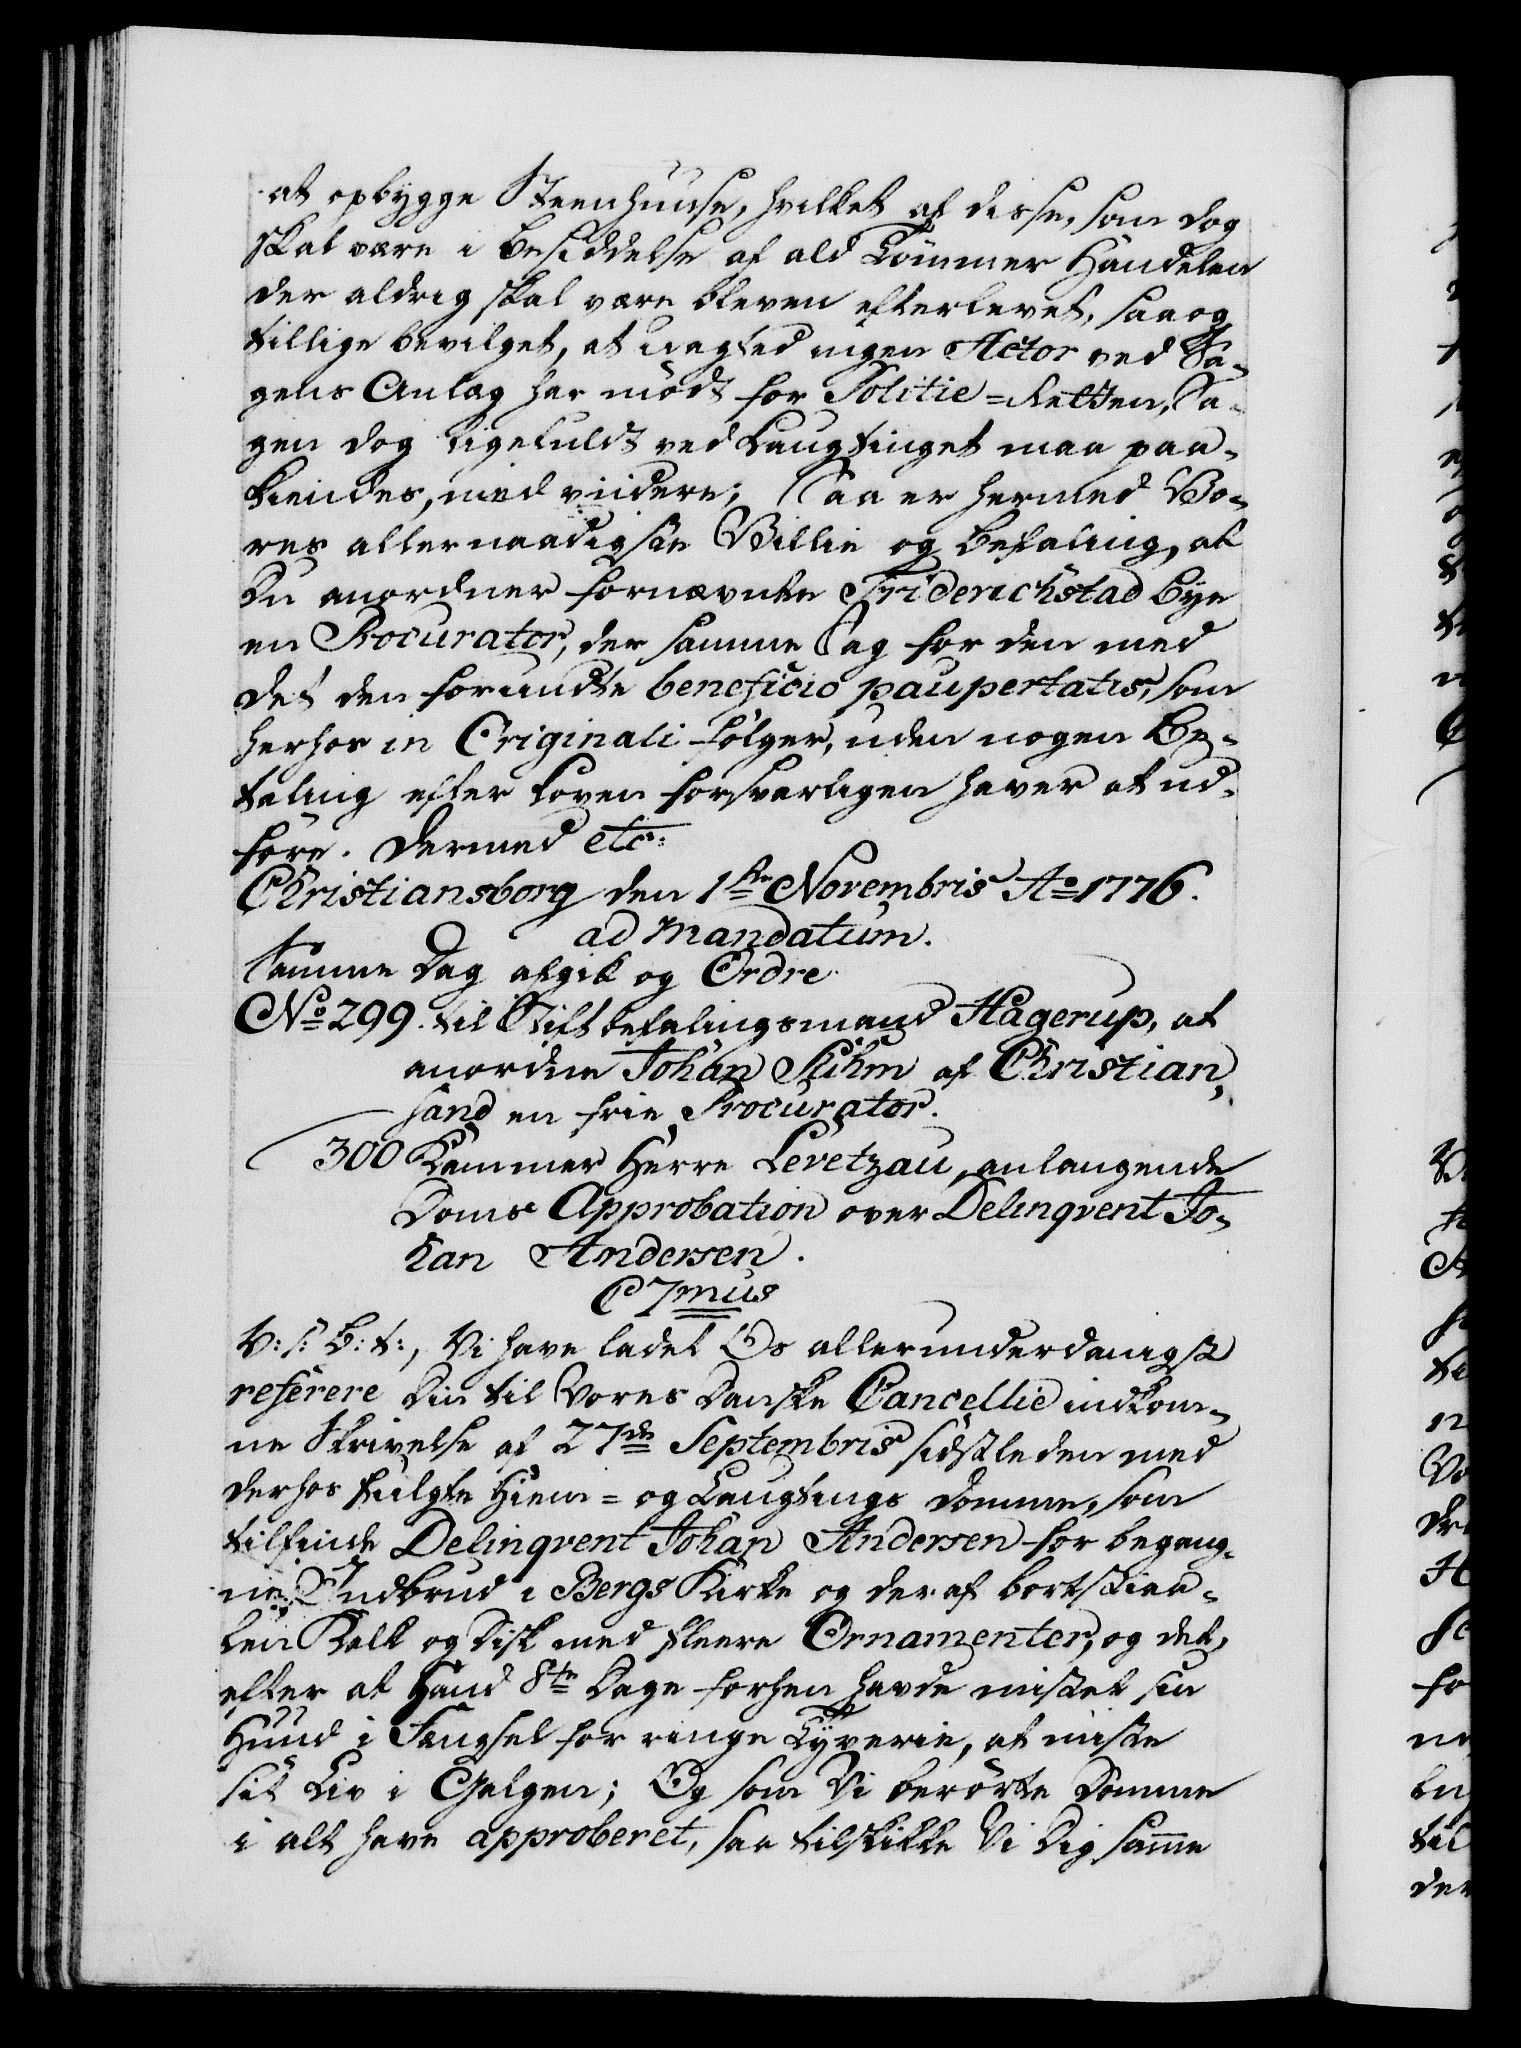 at opbygge Steenhuuse, hvilket af disse, som dog
skal være i besiddelse af ald Tömmer Handelen
der aldrig skal være bleven efterlevet, saa og
tillige bevilget, at uagted ingen Actor ved Sa-
gens Anlæg har mødt for Politie=Retten, Sa-
gen dog ligefuldt ved Laugtinget maa paa-
kiendes, med viidere; Saa er hermed Vo-
res allernaadigste Villie og befaling, at
Du anordner fornævnte Friderichstad bye
en Procurator, der samme Sag for den med
det den forundte beneficio paupertatis, som
herhos in Originali følger, uden nogen Be-
taling efter Loven forsvarligen haver at ud-
føre. Dermed etc:
Christiansborg den 1ste Novembris Ao 1776.
ad mandatum.
Samme Dag afgik og Ordre
No 299. til Stiftbefalingsmand Hagerup, at
anordne Johan Suhm af Christian-
sand en frie Procurator.
300 Kammer Herre Levetzau, anlangende
Doms Approbation over Delinqvent Jo-
han Andersen.
C7mus
V: S: B: t:, Vi have ladet Os allerunderdanigst
referere Din til Vores Danske Cancellie indkom-
ne Skrivelse af 27de Septembris sidstleden med
derhos fulgte Hiem= og Laugtings Domme, som
tilfinde Delinqvent Johan Andersen for begang-
ne Indbrud i Bergs Kirke og deraf bortstiaa-
len Kalk og Disk med fleere Ornamenter, og det,
efter at Hand 8te Dage forhen havde mistet sin
Huud i Fængsel for ringe Tyverie, at miste
sit Liv i Galgen; Og som Vi berørte Domme
i alt have approberet, saa tilskikke Vi Dig samme